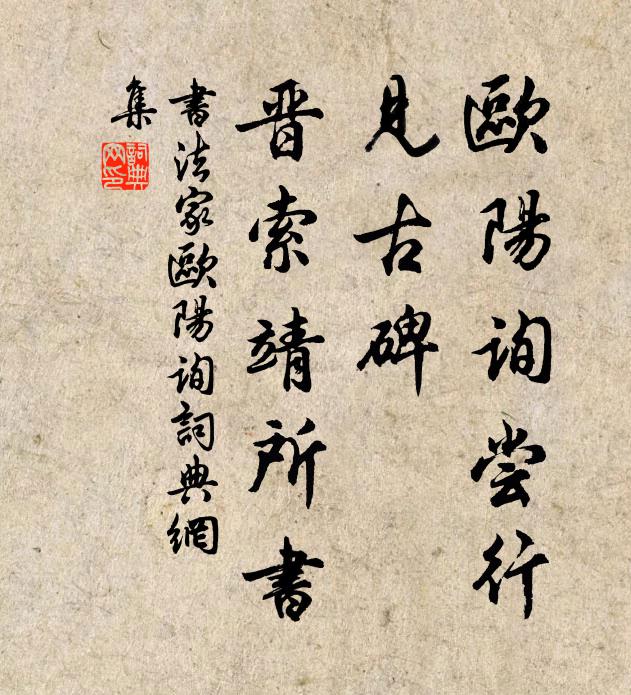 歐陽詢尝行
見古碑
晋索靖所書
書法家歐陽询詞典網
集
詞典
网印